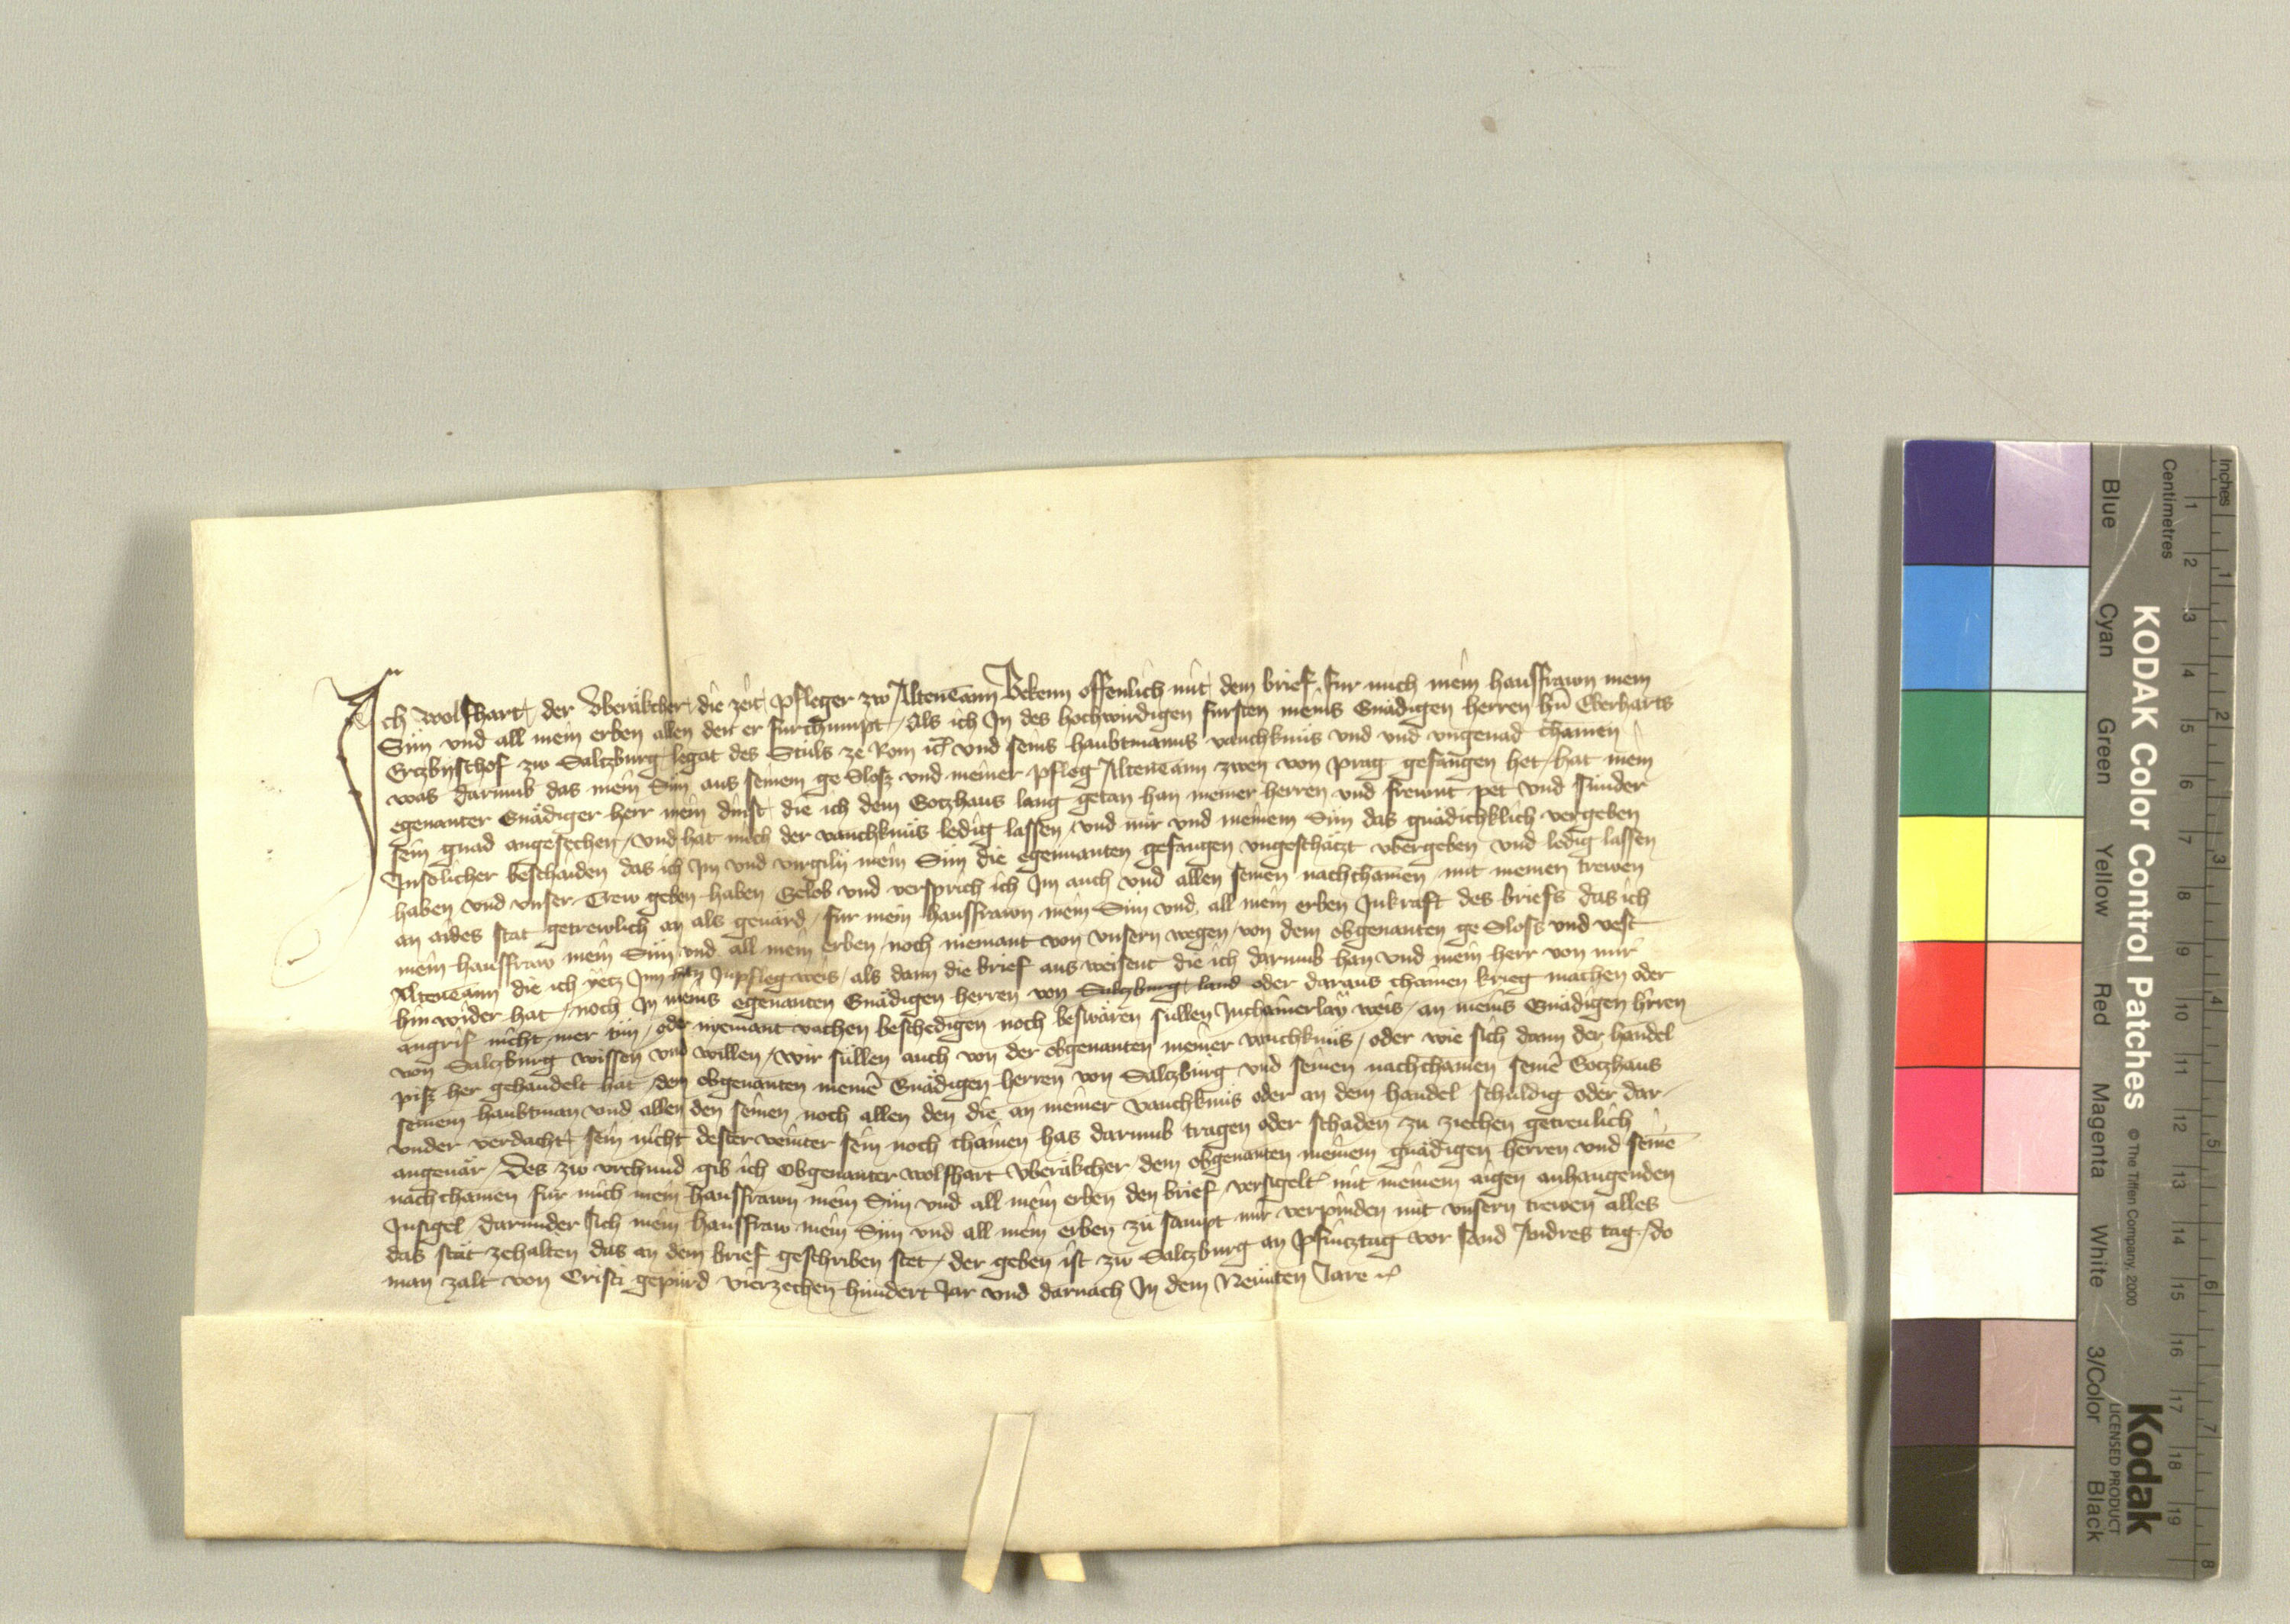 Ich Wolfhart der Vberäkcher die zeit Pfleger zw Altentann Bekenn offenlich mit dem brief fur mich mein hausfrawn mein
Sün vnd all mein erben allen den er furchumpt Als ich In des hochwirdigen fursten meins Gnädigen herren hern Eberharts
Ertzbyschof zw Saltzburg legat des Stuls ze Rom vnd seins haubtmanns vanchknüs vnd vnd vngenad chamen
was darumb das mein Sün aus seinem geSlosz vnd meiner pfleg Altentann zwen von Prag gefangen het hat mein
egenanter Gnädiger herr mein dinst die ich dem Gotzhaus lang getan han meiner herren vnd frewnt pet vnd sunder
sein gnad angesechen vnd hat mich der vanchknüs ledig lassen vnd mir vnd meinem Sün das gnädichklich vergeben
Insolicher beschaiden das ich Im vnd virgily mein Sün die egennanten gefangen vngeschätzt vbergeben vnd ledig lassen
haben vnd vnser Trew geben haben Gelob vnd versprich ich Im auch vnd allen seinen nachchamen mit meinen trewen
an aides stat getrewlich an als geuärd fur mein hausfrawn mein Sün vnd all mein erben Inkraft des briefs das ich
mein hausfraw mein Sün vnd all mein erben noch niemant von vnsern wegen von dem obgenanten geSloss vnd vest
Altentann die ich yetz Inn han Inpflegweis als dann die brief ausweisent die ich darumb han vnd mein herr von mir
hinwider hat noch In meins egenanten Gnädigen herren von Saltzburg land oder daraus chainen krieg machen oder
angrif nicht mer tün oder nyemant vachen beschedigen noch beswären sullen Inchainerlay weis an meins Gnädigen herren
von Saltzburg wissen vnd willen Wir sullen auch von der obgenanten meiner vanchknüs oder wie sich dann der handel
pisz her gehandelt hat dem obgenanten meinem Gnädigen herren von Saltzburg vnd seinen nachchamen seinem Gotzhaus
seinem haubtman vnd allen den seinen noch allen den die an meiner vanchknüs oder an dem handel schuldig oder dar
vnder verdacht sein nicht dester veinter sein noch chainen has darumb tragen oder schaden zu ziechen getreulich
angeuär Des zw vrchund gib ich obgenanter Wolfhart Vberäkcher dem obgenanten meinem gnädigen herren vnd seinen
nachchamen fur mich mein hausfrawn mein Sün vnd all mein erben den brief versigelt mit meinem aigen anhangenden
Insigel darunder sich mein hausfraw mein Sün vnd all mein erben zu sampt mir verpinden mit vnsern trewen alles
das stät zehalten das an dem brief geschriben stet der geben ist zw Saltzburg an Pfintztag vor sand Andres tag do
man zalt von Cristi gepürd vierzechen hundert Jar vnd darnach In dem Neunten Jare
Inches
Centimetres
Blue Cyan Green Yellow Red Magenta White 3/Color Black
KODAK Color Control Patches
© The Tiffen Company, 2000
Kodak
LICENSED PRODUCT
1 2 3 4 5 6 7 8 9 10 11 12 13 14 15 16 17 18 19
1 2 3 4 5 6 7 8